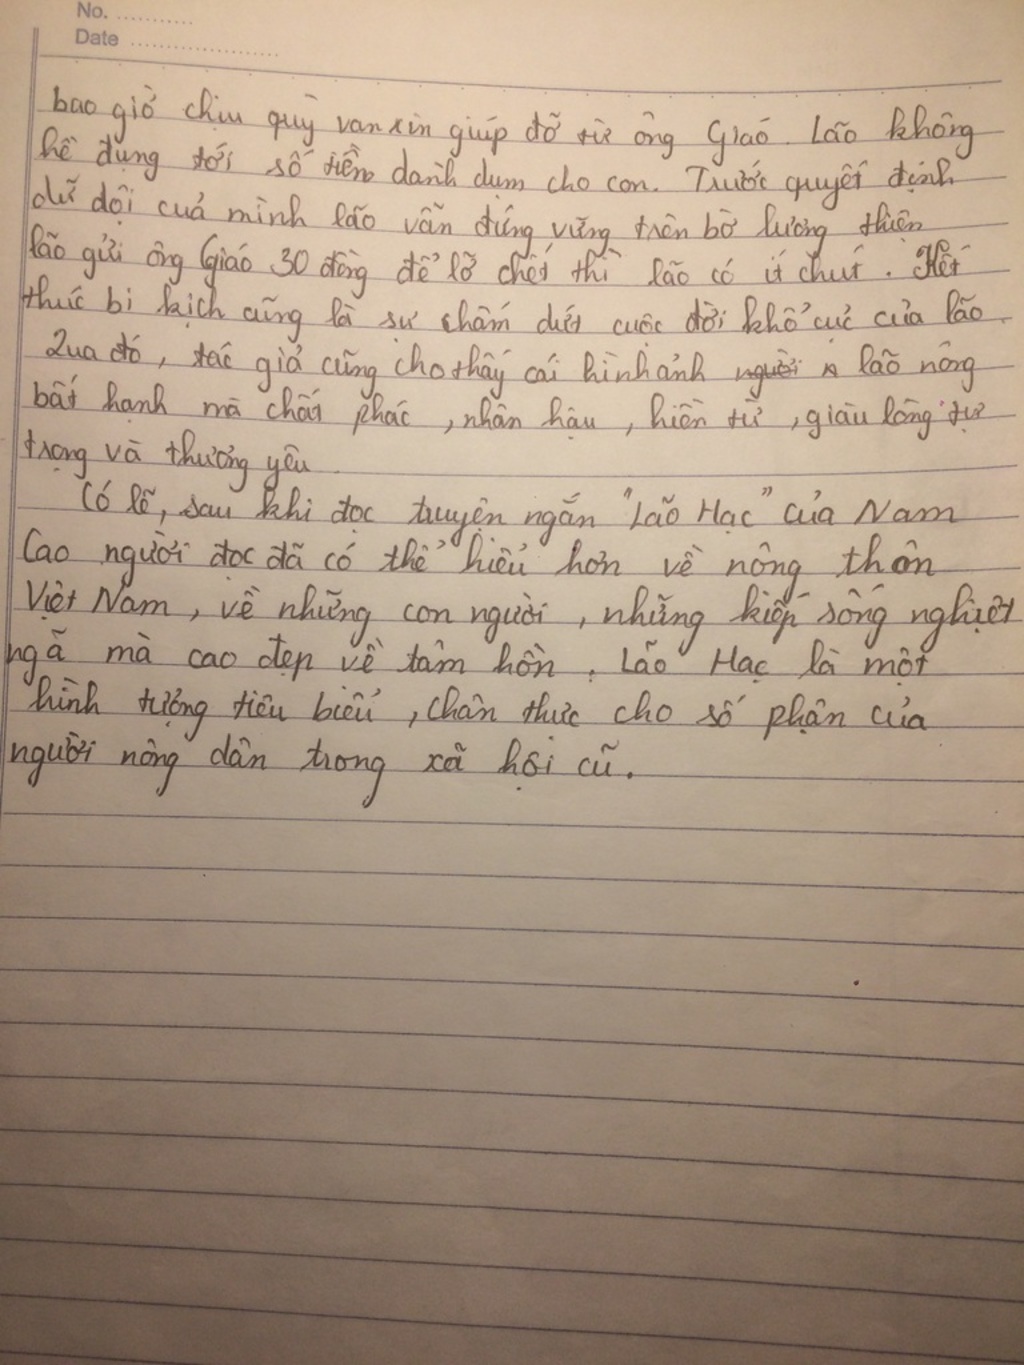 No. ...........
Date ......................
bao giờ chịu quỳ van xin giúp đỡ từ ông Giáo. Lão không
hề đụng tới số tiền dành dụm cho con. Trước quyết định
dữ dội của mình lão vẫn đứng vững trên bờ lương thiện
lão gửi ông Giáo 30 đồng để lỡ chết thì lão có ít chút. Kết
thúc bi kịch cũng là sự chấm dứt cuộc đời khổ cực của lão.
Qua đó, tác giả cũng cho thấy cái hình ảnh người lão nông
bất hạnh mà chất phác, nhân hậu, hiền từ, giàu lòng tự
trọng và thương yêu
Có lẽ, sau khi đọc truyện ngắn "Lão Hạc" của Nam
Cao người đọc đã có thể hiểu hơn về nông thôn
Việt Nam, về những con người, những kiếp sống nghiệt
ngã mà cao đẹp về tâm hồn. Lão Hạc là một
hình tượng tiêu biểu, chân thực cho số phận của
người nông dân trong xã hội cũ.